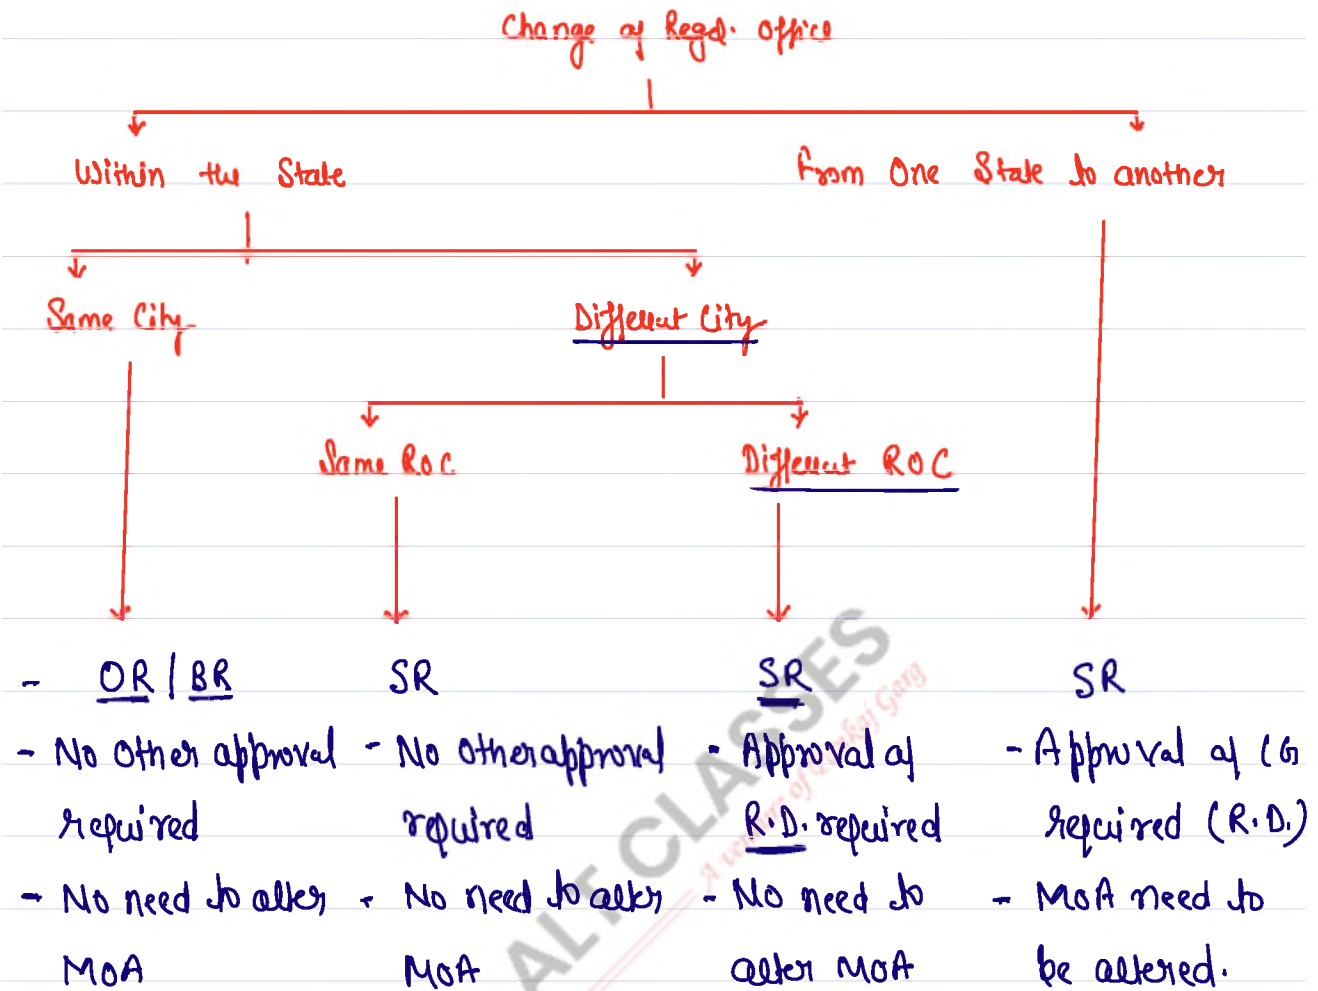 Change of Regd. Office
Within the State
From One State to another
Same City
Different City
Same ROC
Different ROC
- OR / BR
SR
SR
SR
- No other approval
required
- No need to alter
MOA
- No other approval
required
- No need to alter
MOA
- Approval of
R.D. required
- No need to
alter MOA
- Approval of CG
required (R.D.)
- MOA need to
be altered.
ALT CLASSES
A venture of Pankaj Garg